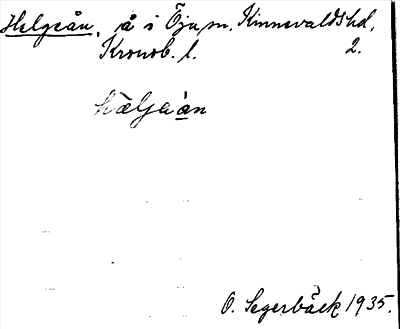 Helgeån, å i Öja sn, Kinnevalds hd,
Kronob. l. 2.
hæljaán
O. Segerbäck 1935.